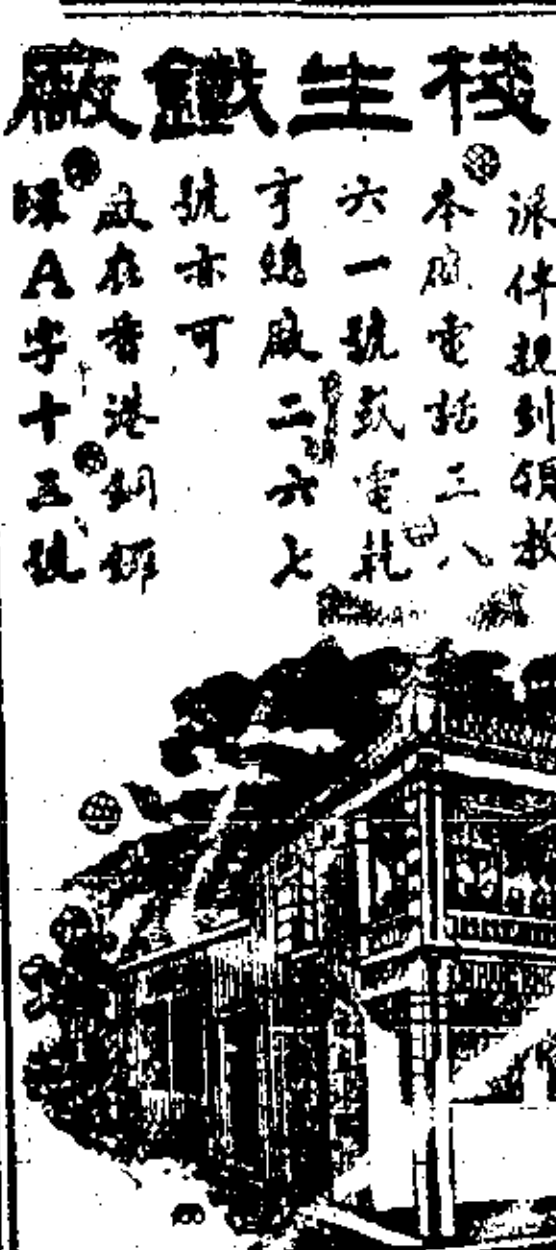 棧生鐵廠
派伴親到領教
本廠電話三八
六一號或電乾
亨總廠二六七
號亦可
廠在香港銅鑼
環A字十五號